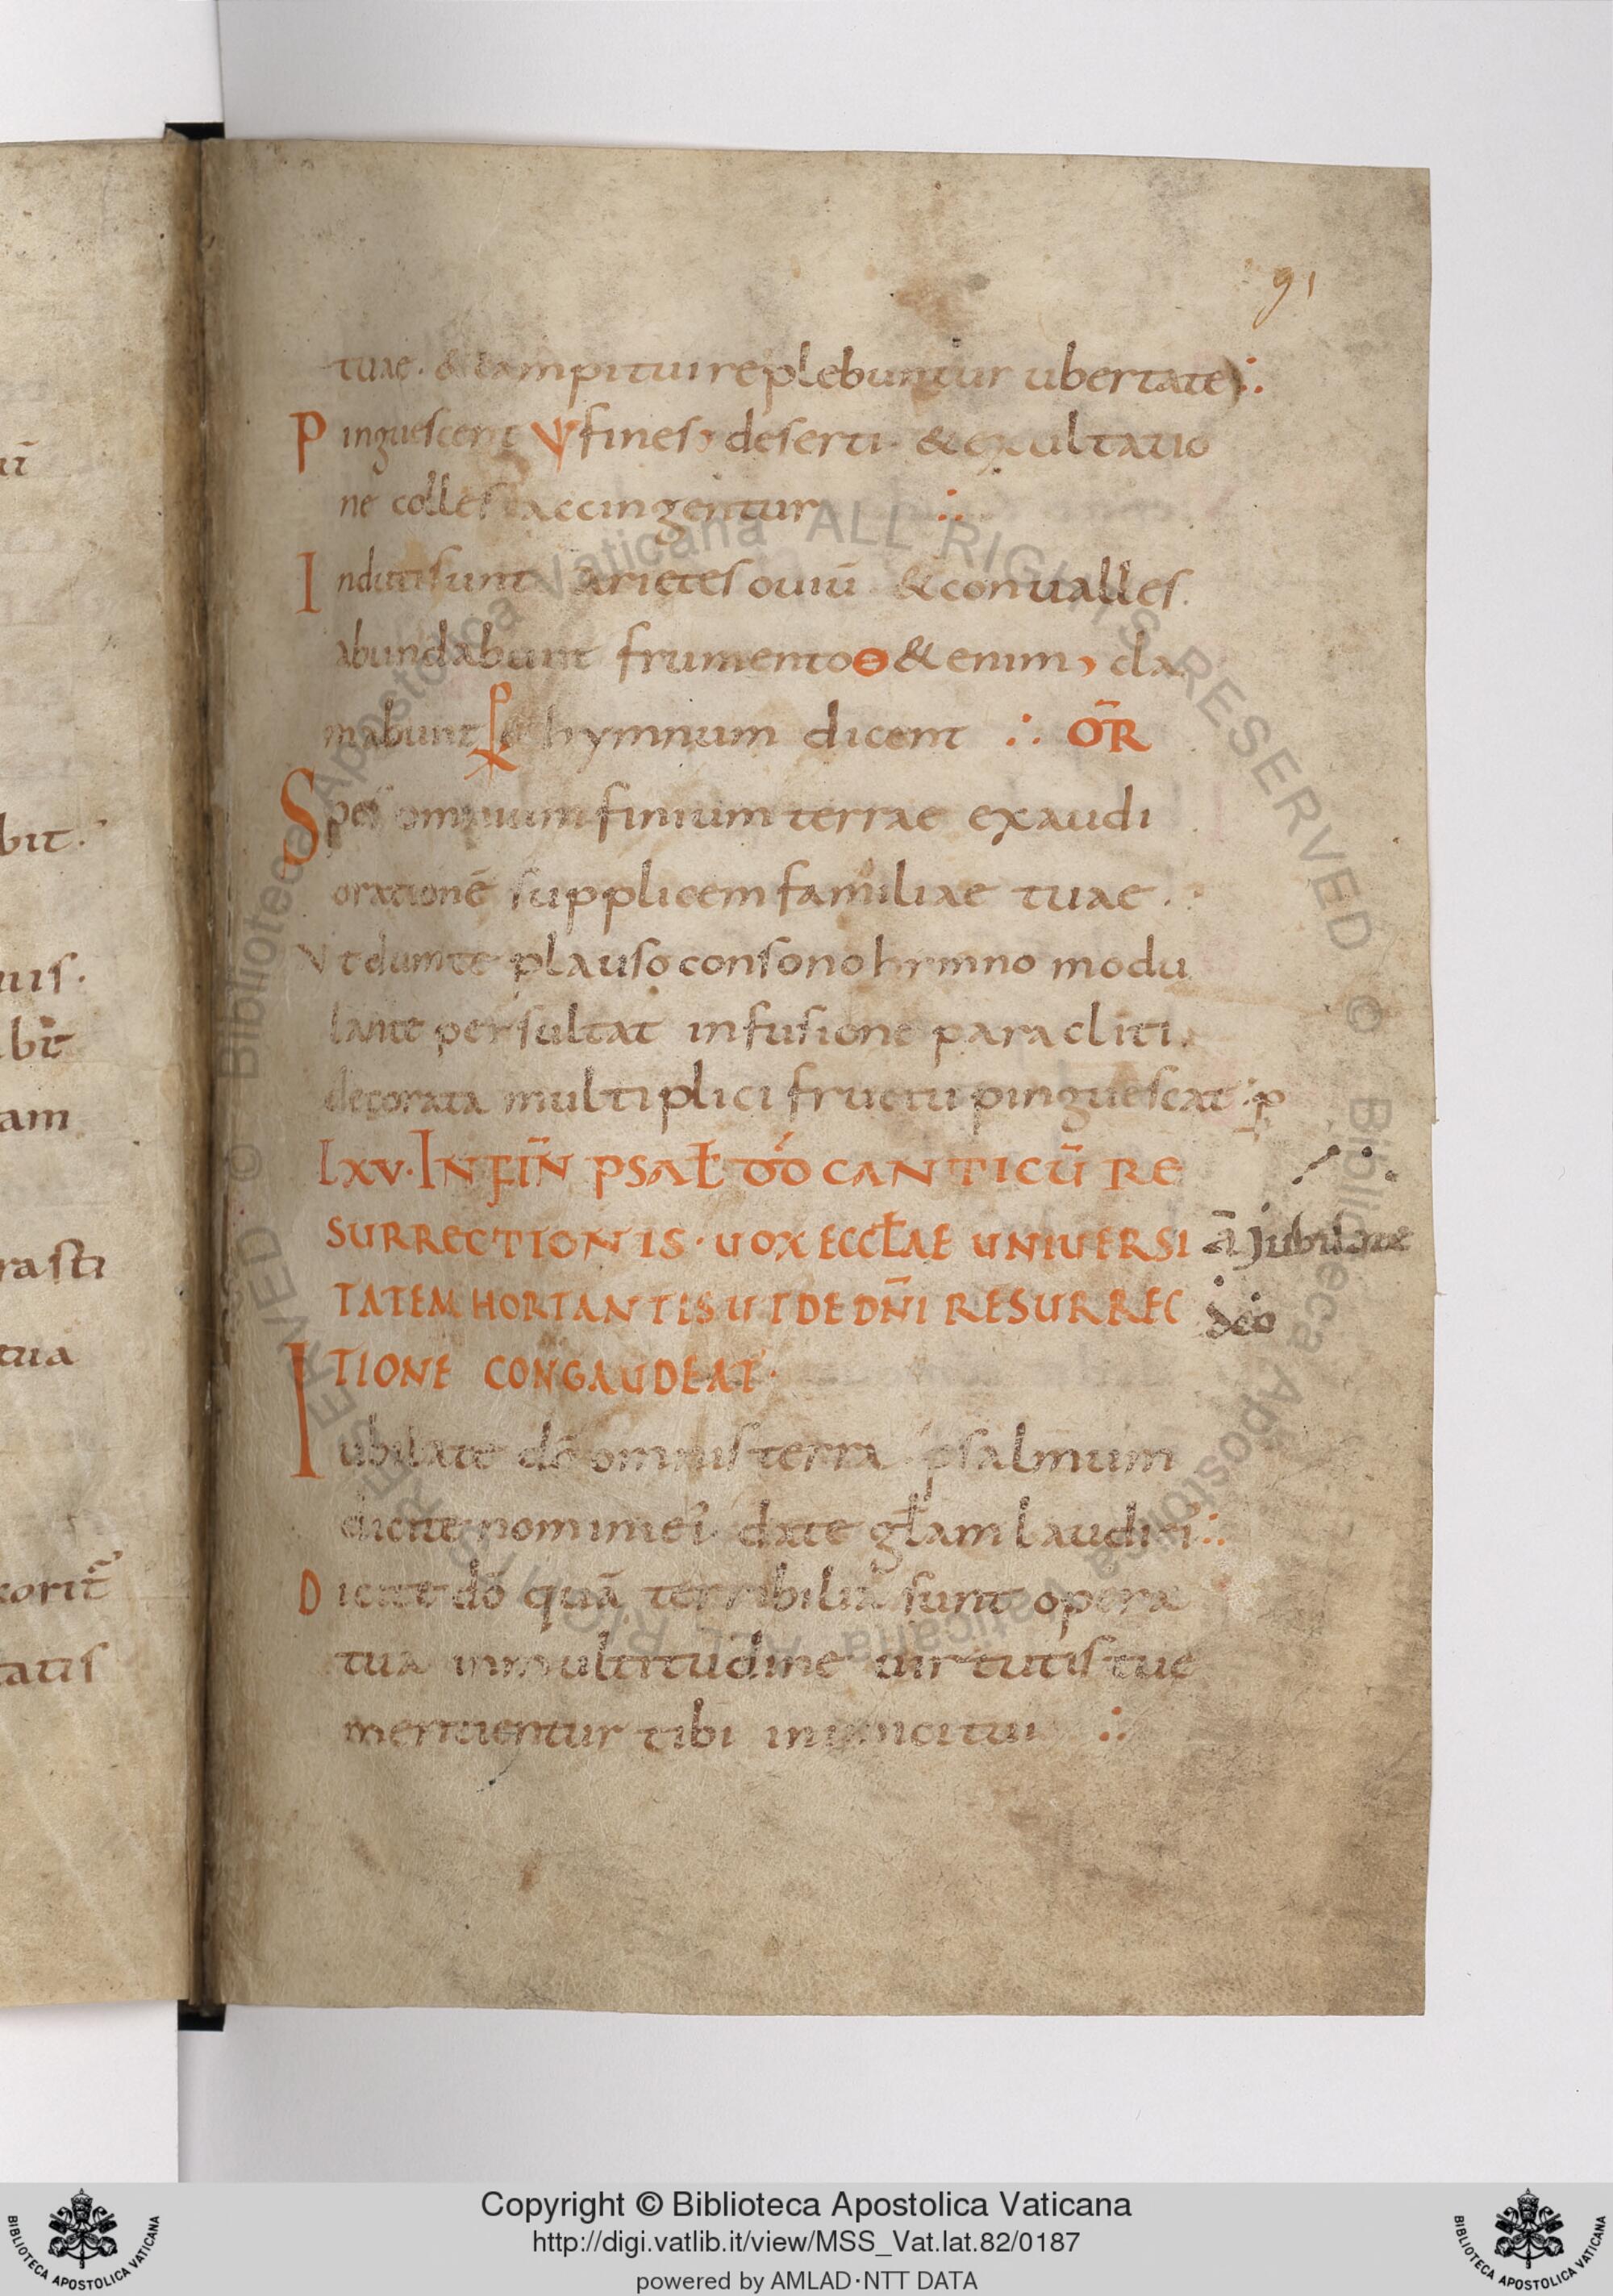 91
tuae · & campi tui replebuntur ubertate ∴
Pinguescent fines deserti · & exultatio
ne colles accingentur ∴
Induti sunt arietes ouiū & conualles
abundabunt frumento & enim cla
mabunt & hymnum dicent ∴ OR̄
Spes omnium finium terrae exaudi
orationē supplicem familiae tuae ·
Vt dum te plauso consono hymno modu
lante persultat infusione paracliti ·
decorata multiplici fructu pinguescat : p
LXV · IN FIN̄ PSAŁ DD CANTICŪ RE
SURRECTIONIS · UOX ECCŁAE UNIUERSI
TATEM HORTANTIS UT DE DN̄I RESURREC
TIONE CONGAUDEAT ·
ā Jubilate
deo
Iubilate dō omnis terra · psalmum
dicite nomini ei · date głam laudi ei ∴
Dicite dō quā terribilia sunt opera
tua in multitudine uirtutis tue
mentientur tibi inimici tui ∴
uī
bit ·
uis ·
bīt
am
rasti
tua
tatis
Copyright © Biblioteca Apostolica Vaticana
http://digi.vatlib.it/view/MSS_Vat.lat.82/0187
powered by AMLAD·NTT DATA
BIBLIOTECA APOSTOLICA VATICANA
BIBLIOTECA APOSTOLICA VATICANA
© Biblioteca Apostolica Vaticana ALL RIGHTS RESERVED